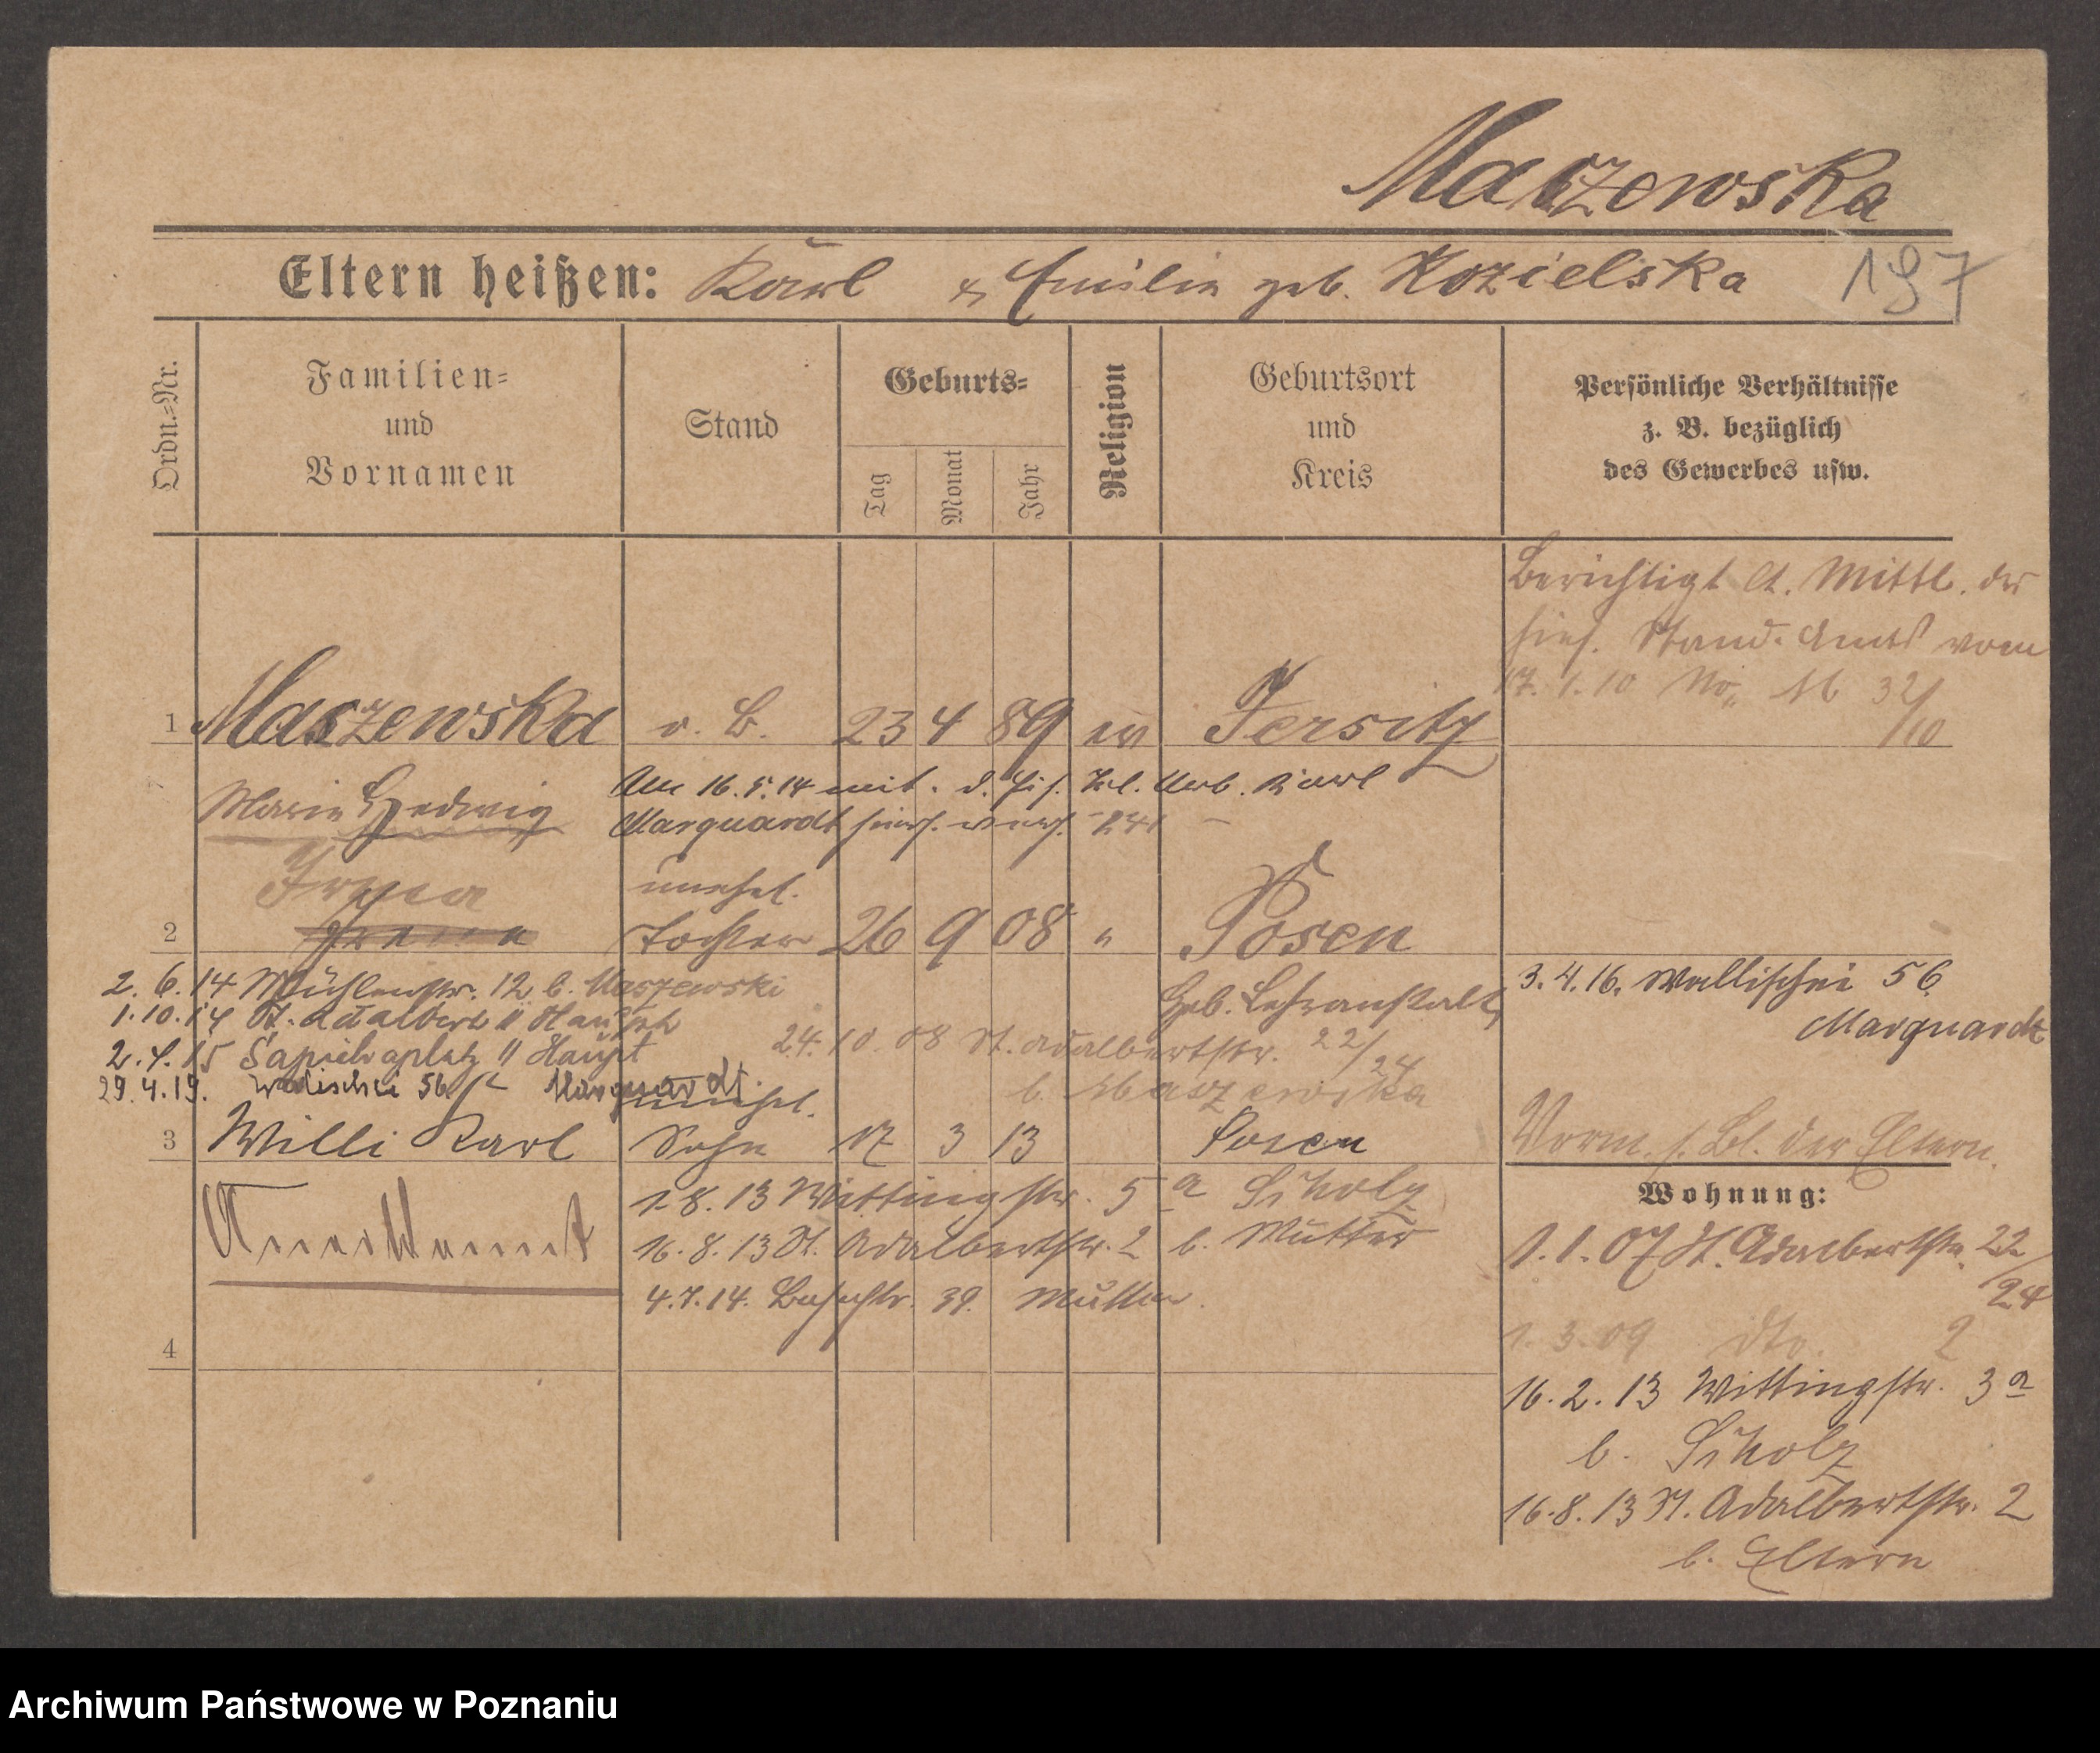 Maszewska
Eltern heißen: Karl & Emilie geb. Kozielska 197
Ordn.-Nr.
Familien-
und
Vornamen
Stand
Geburts-
Tag
Monat
Jahr
Religion
Geburtsort
und
Kreis
Persönliche Verhältnisse
z. B. bezüglich
des Gewerbes usw.
Berichtigt lt. Mittl. des
hies. Stand. Amts vom
17. 1. 10 No 16 32/10
1 Maszewska o. B. 23 4 89 ev Jersitz
Marie Hedwig
Am 16. 5. 14 mit d. Karl
Marquardt hier verh.
Irena
unehel.
2 Tochter 26 9 08 " Posen
Geb. Lehranstalt
2. 6. 14 Mühlenstr. 12 b. Maszewski
1. 10. 14 St. Adalbert 11 Haupt
24. 10. 08 St. Adalbertstr. 22/24
b. Maszewska
2. 4. 15 Sapiehaplatz 11 Haupt
29. 4. 19. Wallischei 56 Marquardt.
3. 4. 16. Wallischei 56
Marquardt
unehel.
3 Willi Karl Sohn 17 3 13 Posen
Verm. s. Bl. der Eltern.
Anerkannt
1. 8. 13 Wittingstr. 5 a Scholz
16. 8. 13 St. Adalbertstr. 2 b. Mutter
4. 7. 14. 39. Mutter
4
Wohnung:
1. 1. 07 St. Adalbertstr. 22/24
1. 3. 09 dto. 2
16. 2. 13 Wittingstr. 3 a
b. Scholz
16. 8. 13 St. Adalbertstr. 2
b. Eltern
Archiwum Państwowe w Poznaniu